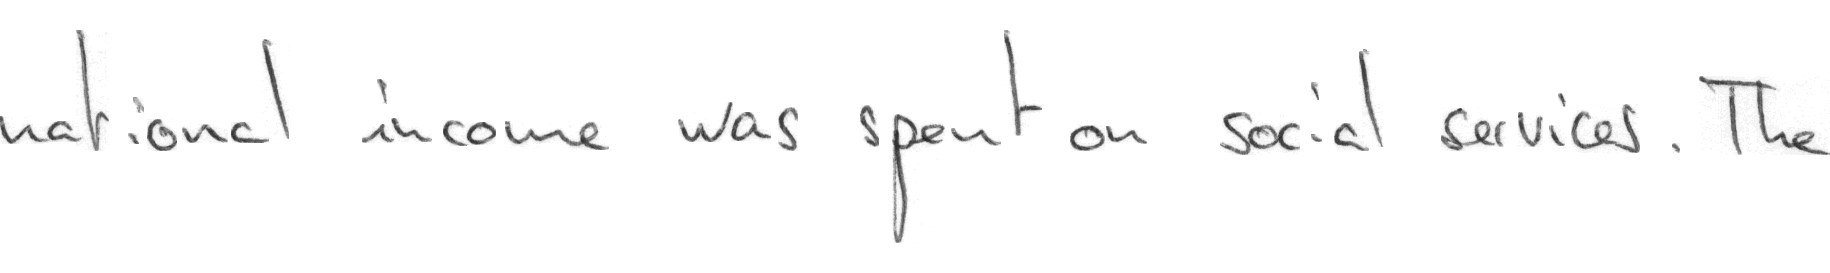 national income was spent on social services. The